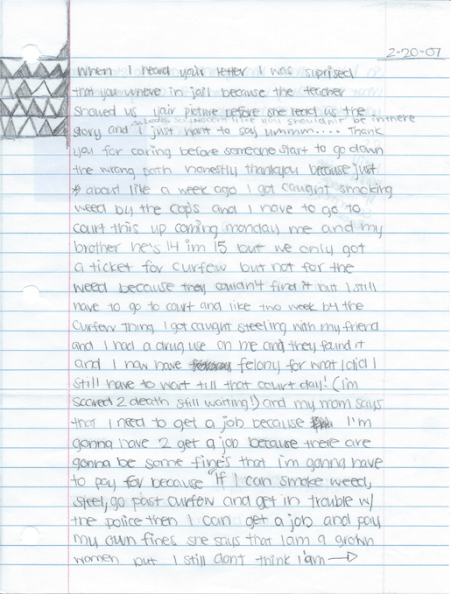 2-20-07
When I heard your letter I was suprised
that you where in jail because the teacher
showed us your picture before she read us the
so innocent like you shouldn't be in there
story and I just want to say ummm.... Thank
you for caring before someone start to go down
the wrong path honestly thankyou because just
about like a week ago I got caught smoking
weed by the cops and I have to go to
court this up coming monday me and my
brother he's 14 im 15 but we only got
a ticket for curfew but not for the
weed because they couldn't find it but I still
have to go to court and like two week by the
curfew thing I got caught steeling with my friend
and I had a drug use on me and they found it
and I now have felony for what I did I
still have to wait till that court day! (i'm
scared 2 death still waiting!) and my mom says
that I need to get a job because I'm
gonna have 2 get a job because there are
gonna be some fine's that i'm gonna have
to pay for because "If I can smoke weed,
steel, go past curfew and get in trouble w/
the police then I can get a job and pay
my own fines she says that I am a grown
women but I still dont think I am →